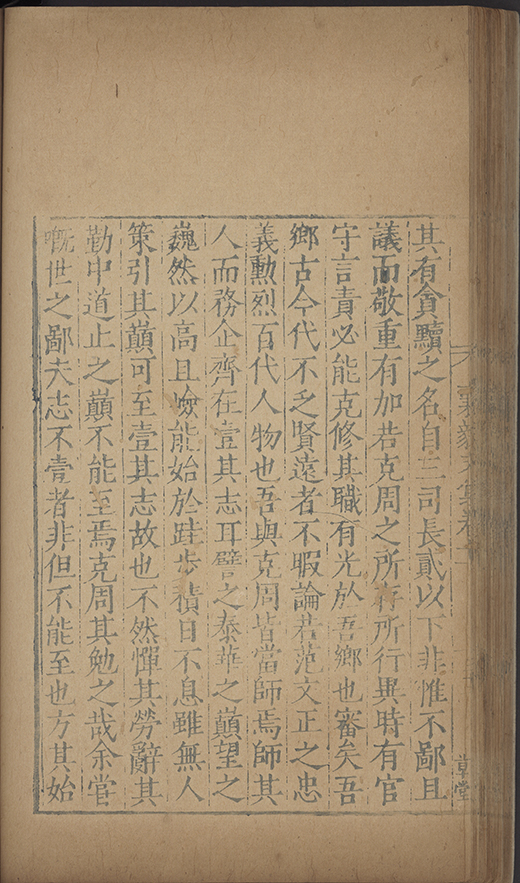 其有貪黷之名自三司長貳以下非惟不鄙且
議而敬重有加若克周之所存所行異時有官
守言責必能克修其職有光於吾鄉也審矣吾
鄉古今代不乏賢遠者不暇論若范文正之忠
義勳烈百代人物也吾與克周皆當師焉師其
人而務企齊在壹其志耳譬之泰華之巔望之
巍然以高且嶮能始於跬步積日不息雖無人
策引其巔可至壹其志故也不然憚其勞辭其
勤中道止之巔不能至焉克周其勉之哉余嘗
嘅世之鄙夫志不壹者非但不能至也方其始
草堂